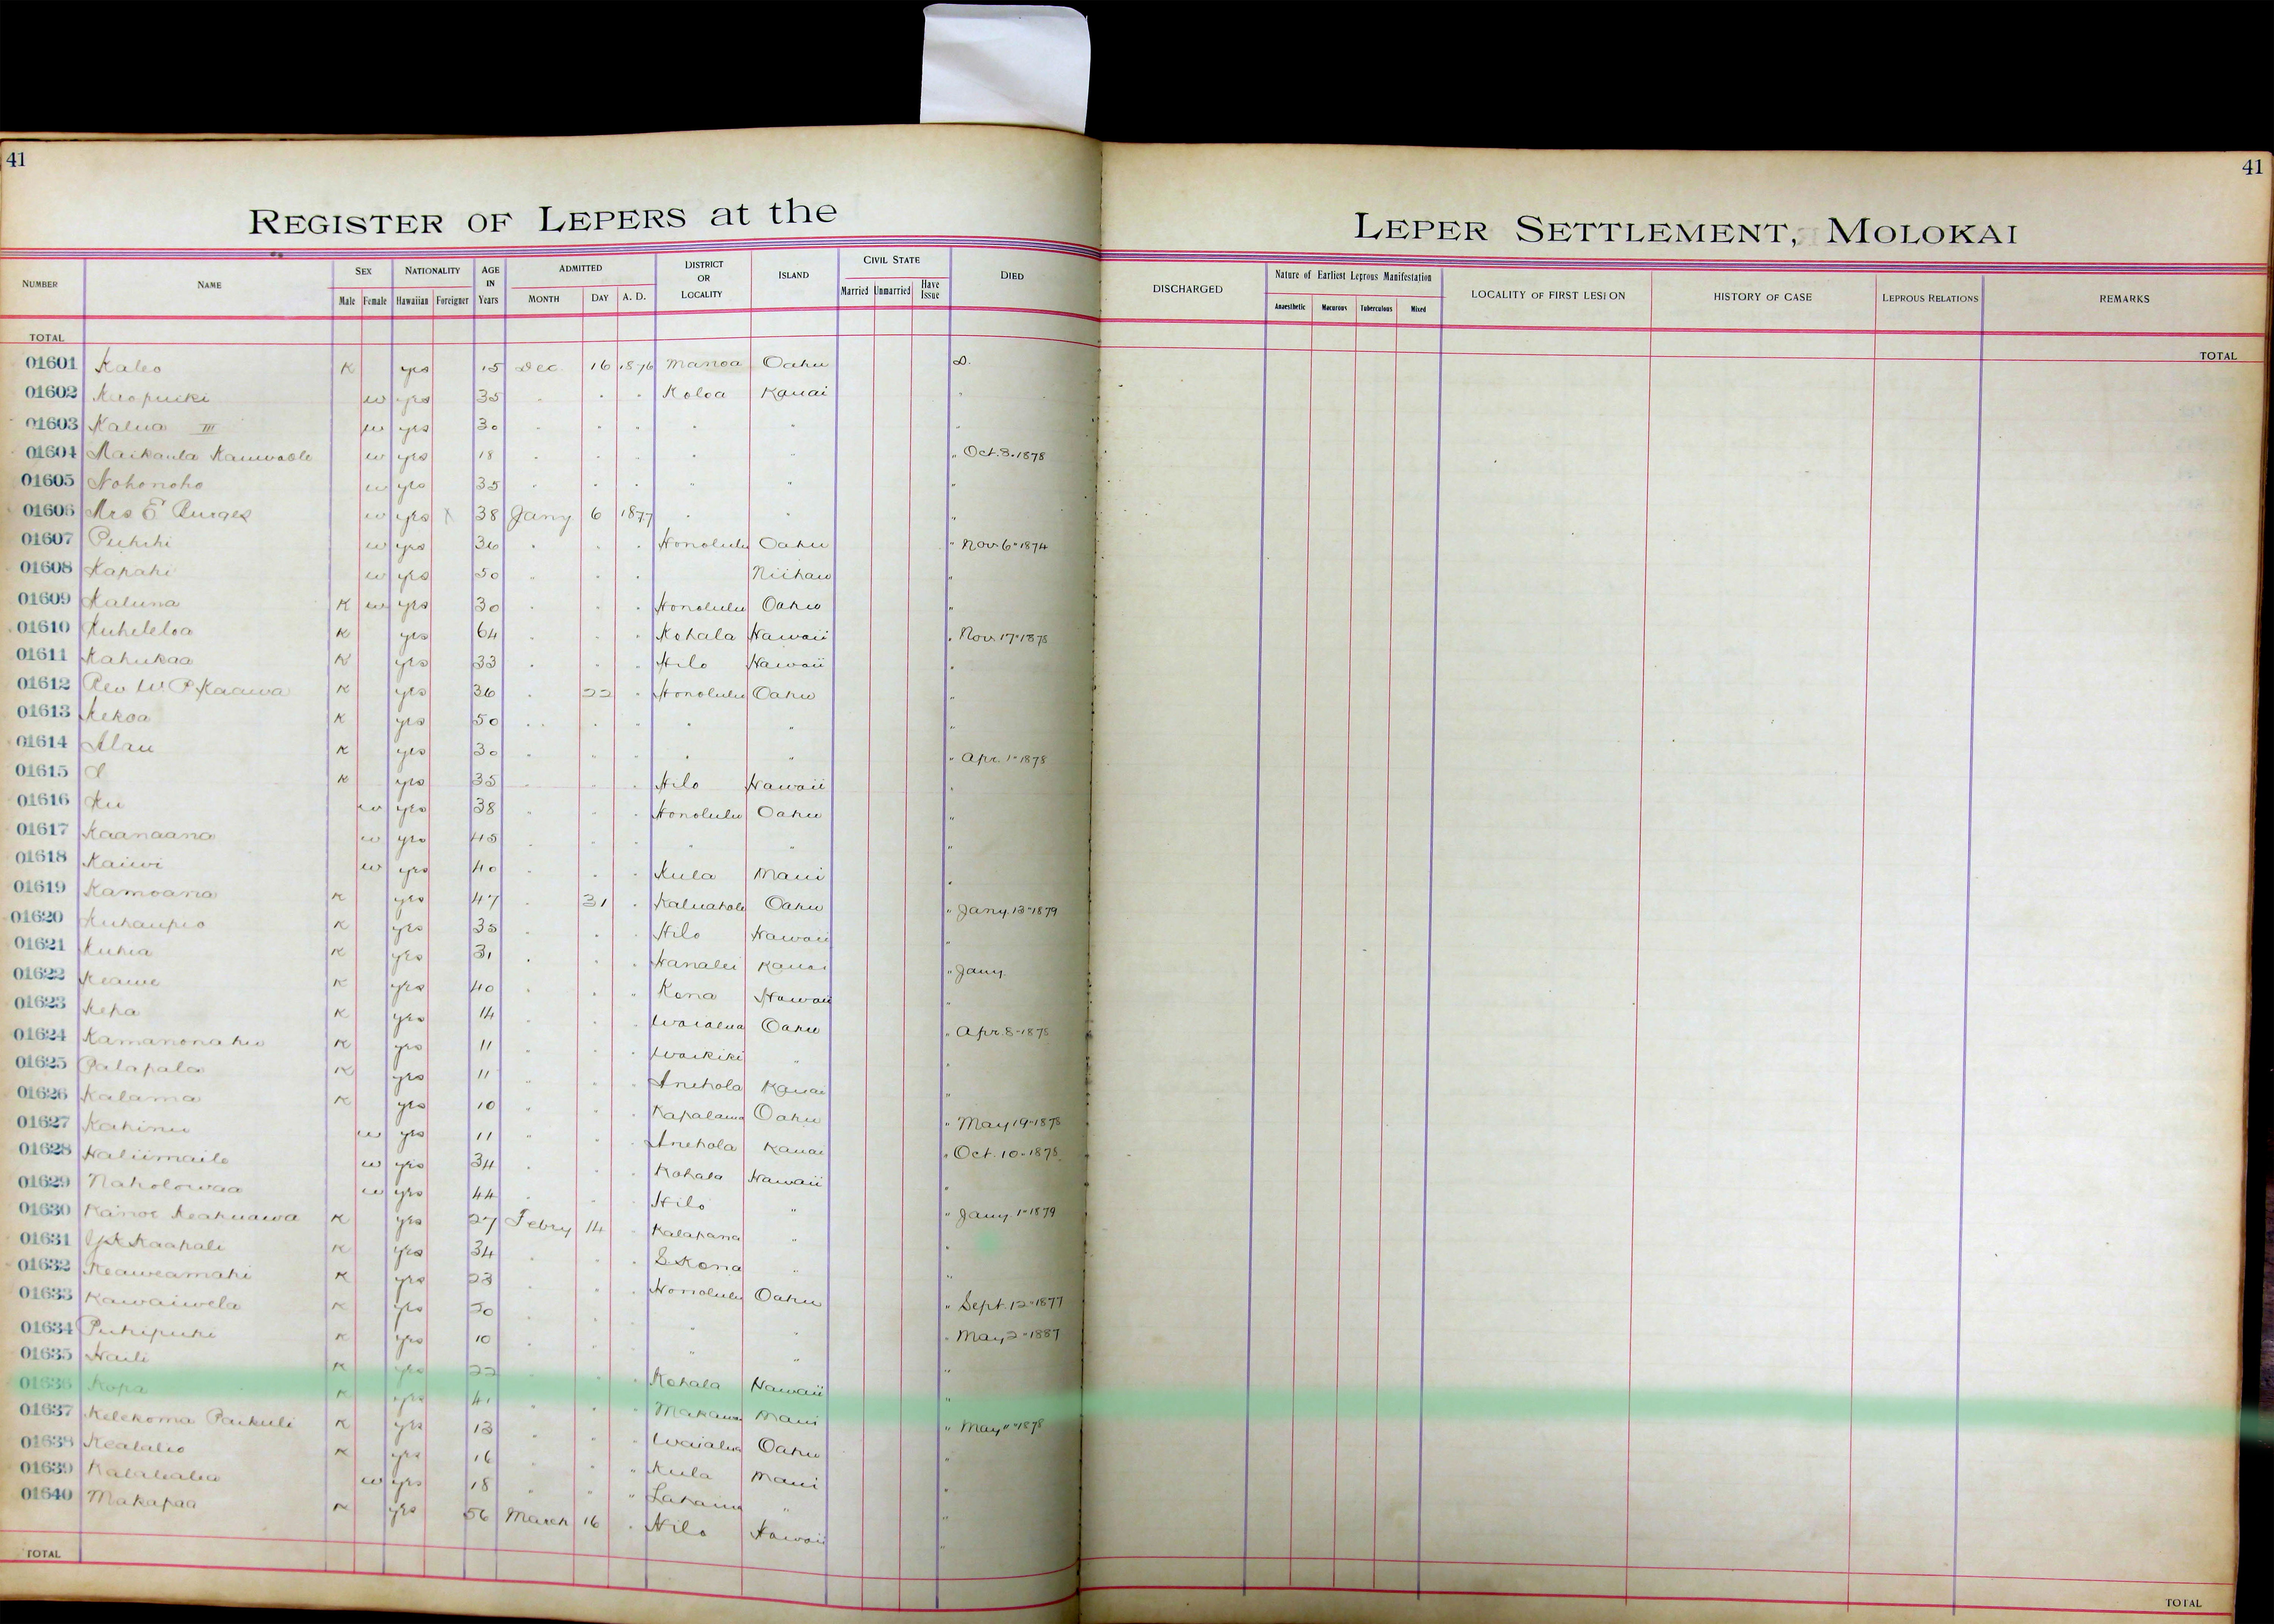 41
41
REGISTER OF LEPERS at the
LEPER SETTLEMENT, MOLOKAI
NUMBER NAME SEX Male Female NATIONALITY Hawaiian Foreigner AGE IN Years ADMITTED MONTH DAY A. D. DISTRICT OR LOCALITY ISLAND CIVIL STATE Married Unmarried Have Issue DIED
DISCHARGED Nature of Earliest Leprous Manifestation Anaesthetic Macurous Tuberculous Mixed LOCALITY OF FIRST LESION HISTORY OF CASE LEPROUS RELATIONS REMARKS
TOTAL
TOTAL
01601 Kaleo K yes 15 Dec. 16 1876 Manoa Oahu D.
01602 w yes 35 " " " Koloa Kauai "
01603 Kalua III w yes 30 " " " " " "
01604 Maikaula w yes 18 " " " " " " Oct. 3. 1878
01605 Nohonoho w yes 35 " " " " " "
01606 Mrs E Burges w yes X 38 Jany 6 1877 " " "
01607 Puhihi w yes 36 " " " Honolulu Oahu " Nov 6" 1874
01608 Kapahi w yes 50 " " " Niihau "
01609 Kaluna K w yes 30 " " " Honolulu Oahu "
01610 Kuheleloa K yes 64 " " " Kohala Hawaii " Nov. 17" 1878
01611 Kahukaa K yes 33 " " " Hilo Hawaii "
01612 Rev W. P. Kaawa K yes 36 " 22 " Honolulu Oahu "
01613 Kekoa K yes 50 " " " " " "
01614 Alau K yes 30 " " " " " " Apr. 1" 1878
01615 K yes 35 " " " Hilo Hawaii "
01616 Ku w yes 38 " " " Honolulu Oahu "
01617 Kaanaana w yes 45 " " " " " "
01618 Kaiwi w yes 40 " " " Kula Maui "
01619 Kamoana K yes 47 " 31 " Oahu " Jany. 13" 1879
01620 Kuhaupio K yes 35 " " " Hilo Hawaii "
01621 Kuhia K yes 31 " " " Hanalei Kauai " Jany.
01622 Keawe K yes 40 " " " Kona Hawaii "
01623 Kepa K yes 14 " " " Waialua Oahu " Apr. 8" 1878
01624 K yes 11 " " " Waikiki " "
01625 Palapala K yes 11 " " " Anehola Kauai "
01626 Kalama K yes 10 " " " Kapalama Oahu " May 19" 1878
01627 Kahinu w yes 11 " " " Anehola Kauai " Oct. 10" 1878
01628 Haliimaile w yes 34 " " " Kohala Hawaii "
01629 Naholowaa w yes 44 " " " Hilo " " Jany. 1" 1879
01630 Kainoe Keahuawa K yes 27 Febry 14 " Kalapana " "
01631 Kaapale K yes 34 " " " S Kona " "
01632 Keaweamahi K yes 23 " " " Honolulu Oahu " Sept. 12" 1877
01633 Kawaiwela K yes " " " " " " May 2" 1887
01634 Puhipuhi K yes 10 " " " " " "
01635 Haili K yes 22 " " " Kohala Hawaii "
01636 Kopa K yes 41 " " " Makawao Maui " May 11" 1878
01637 Kelekoma Paikuli K yes 13 " " " Waialua Oahu "
01638 K yes 16 " " " Kula Maui "
01639 w yes 18 " " " Lahaina " "
01640 Makapaa K yes 56 March 16 " Hilo Hawaii "
TOTAL
TOTAL